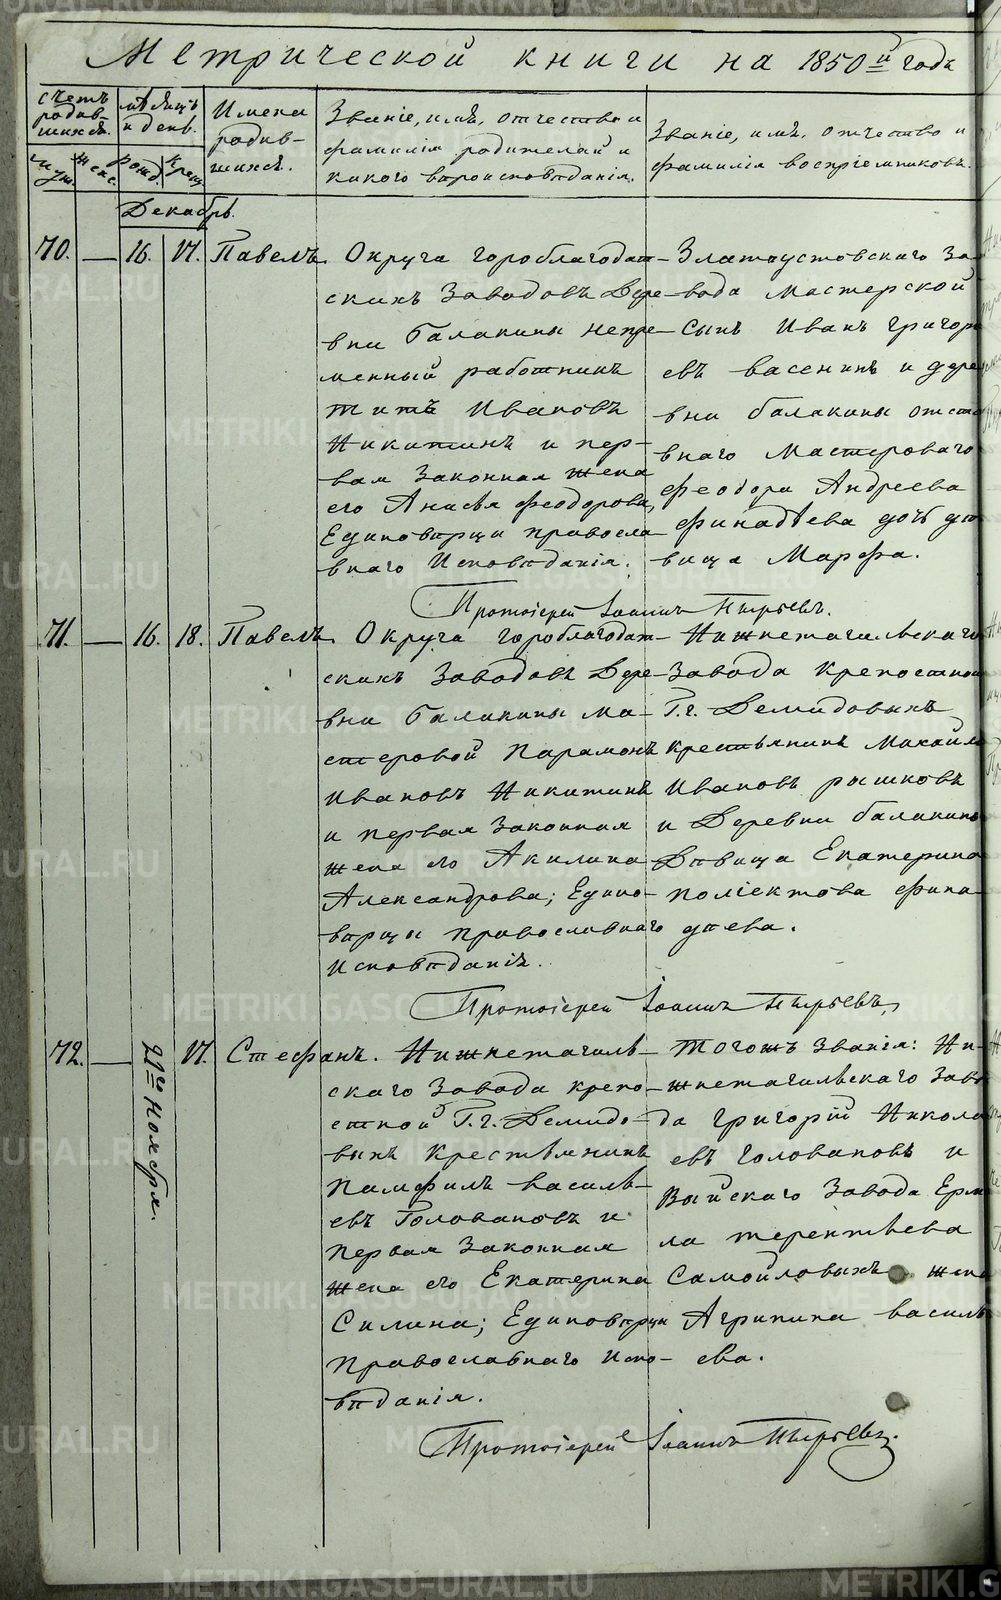 Метрической книги на 1850й годъ
счетъ родив-шихся.
мѣсяцъ и день.
Имена родив-шихся.
Званіе, имя, отчество и фамилія родителей и какого вѣроисповѣданія.
Званіе, имя, отчество и фамилія воспріемниковъ.
муж. женс. рожд. крещ.
Декабрь.
70. — 16. 17. Павелъ.
Округа Гороблагодат-
скихъ Заводовъ Дере-
вни Балакины непре-
менный работникъ
Титъ Ивановъ
Никитинъ и пер-
вая Законная жена
его Анисья Феодорова,
Единовѣрцы правосла-
внаго Исповѣданія.
Златоустовскаго За-
вода Мастерской
Сынъ Иванъ Григорь
евъ Васенинъ и дере
вни Балакины отста
внаго Мастероваго
Феодора Андреева
Финадѣева дочь дѣ
вица Марфа.
Протоіерей Іоаннъ Пырьевъ.
71. — 16. 18. Павелъ.
Округа Гороблагодат-
скихъ Заводовъ Дере-
вни Балакины ма-
стеровой Парамонъ
Ивановъ Никитинъ
и первая Законная
жена его Акилина
Александрова; Едино-
вѣрцы православнаго
исповѣданія.
Нижнетагильскаго
Завода крепостной
Г.г. Демидовыхъ
крестьянинъ Михайло
Ивановъ рашковъ
и Деревни Балакины
Дѣвица Екатерина
Поліектова Фина-
дѣева.
Протоіерей Іоаннъ Пырьевъ.
72. — 27го Ноября. 17. Стефанъ.
Нижнетагиль-
скаго Завода крепо-
стной Г.г. Демидо-
выхъ Крестьянинъ
Памфилъ Василь-
евъ Головановъ и
первая Законная
жена его Екатерина
Силина; Единовѣрцы
Православнаго Испо-
вѣданія.
Тогожъ Званія: Ни-
жнетагильскаго Заво
да Григорій Никола
евъ Головановъ и
Выйскаго Завода Ерми
ла Терентьева
Самойловыхъ жена
Агрипина Василь
ева.
Протоіерей Іоаннъ Пырьевъ.
METRIKI.GASO-URAL.RU